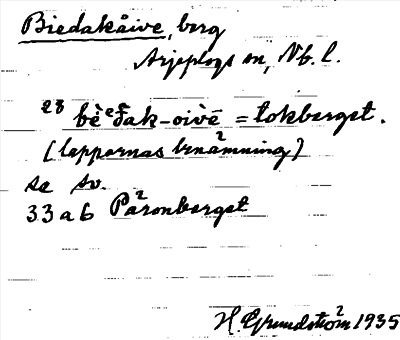 Biedakåive, berg
Arjeplogs sn, Nb. l.
28 bèᵉδ̄ak-oivē = tokberget.
(lapparnas benämning)
se sv.
33 a 6 Päronberget
H. Grundström 1935